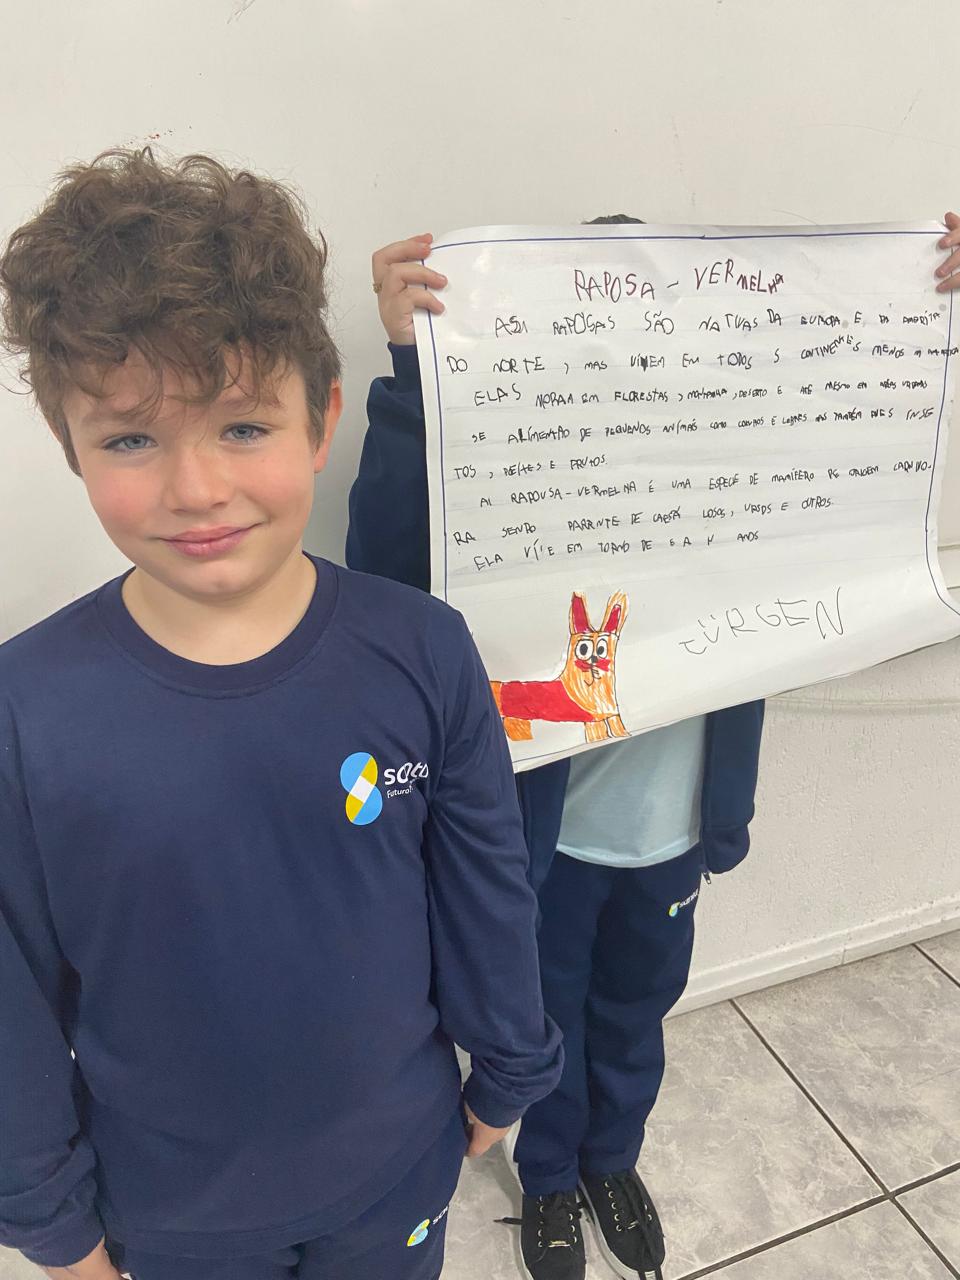 RAPOSA - VERMELHA
AS RAPOSAS SÃO NATIVAS DA EUROPA E DA AMERICA
DO NORTE, MAS VIVEM EM TODOS S CONTINENTES MENOS
ELAS MORAM EM FLORESTAS, MONTANHA, DESERTO E ATÉ MESMO EM
SE ALIMENTÃO DE PEQUENOS ANIMAIS COMO COELHOS E MAS TAMBÉM INSE
TOS, PEIXES E FRUTOS.
RAPOUSA-VERMELHA É UMA ESPECÍE DE MAMÍFERO DE ORIGEM CARNIVO-
RA SENDO PARRENTE DE LOBOS, URSOS E OUTROS.
ELA VÍVE EM TORNO DE ANOS
JÜRGEN
Futuro